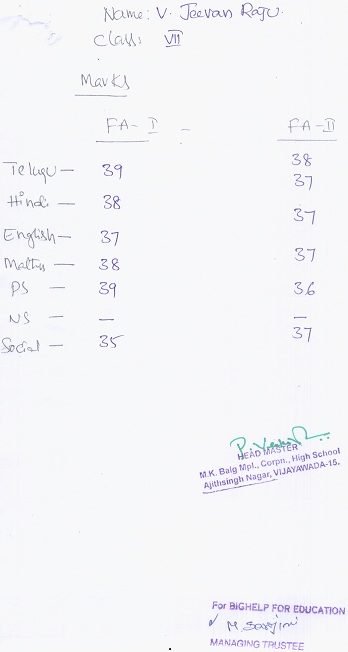 Name: V. Jeevan Raju.
Class: VII
Marks
FA-I - FA-II
Telugu — 39 38
Hindi — 38 37
English — 37 37
Maths — 38 37
PS — 39 36
NS — — —
Social — 35 37
HEAD MASTER
M.K. Baig Mpl., Corpn., High School
Ajithsingh Nagar, VIJAYAWADA-15.
For BIGHELP FOR EDUCATION
M Sarojini
MANAGING TRUSTEE